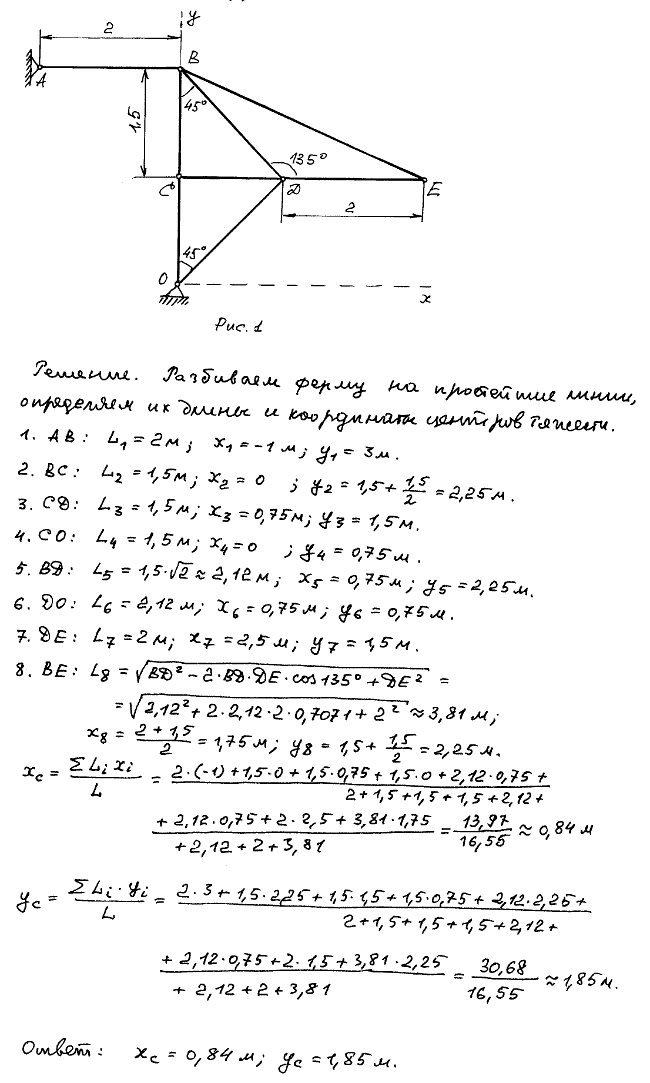 y
2
B
A
45°
1,5
135°
C
D
E
2
45°
O
x
Рис. 1
Решение. Разбиваем ферму на простейшие линии,
определяем их длины и координаты центров тяжести.
1. AB: L₁ = 2м; x₁ = -1 м; y₁ = 3м.
2. BC: L₂ = 1,5м; x₂ = 0 ; y₂ = 1,5 + 1,5/2 = 2,25 м.
3. CD: L₃ = 1,5м; x₃ = 0,75м; y₃ = 1,5м.
4. CO: L₄ = 1,5м; x₄ = 0 ; y₄ = 0,75 м.
5. BD: L₅ = 1,5·√2 ≈ 2,12 м; x₅ = 0,75м; y₅ = 2,25м.
6. DO: L₆ = 2,12 м; x₆ = 0,75м; y₆ = 0,75м.
7. DE: L₇ = 2м; x₇ = 2,5 м; y₇ = 1,5м.
8. BE: L₈ = √(BD² - 2·BD·DE·cos135° + DE²) =
= √(2,12² + 2·2,12·2·0,7071 + 2²) ≈ 3,81 м;
x₈ = (2 + 1,5)/2 = 1,75м; y₈ = 1,5 + 1,5/2 = 2,25м.
x_c = ΣLᵢxᵢ/L = 2·(-1) + 1,5·0 + 1,5·0,75 + 1,5·0 + 2,12·0,75 +
2 + 1,5 + 1,5 + 1,5 + 2,12 +
+ 2,12·0,75 + 2·2,5 + 3,81·1,75
+ 2,12 + 2 + 3,81
= 13,97/16,55 ≈ 0,84 м
y_c = ΣLᵢ·yᵢ/L = 2·3 + 1,5·2,25 + 1,5·1,5 + 1,5·0,75 + 2,12·2,25 +
2 + 1,5 + 1,5 + 1,5 + 2,12 +
+ 2,12·0,75 + 2·1,5 + 3,81·2,25
+ 2,12 + 2 + 3,81
= 30,68/16,55 ≈ 1,85 м.
Ответ: x_c = 0,84 м; y_c = 1,85 м.